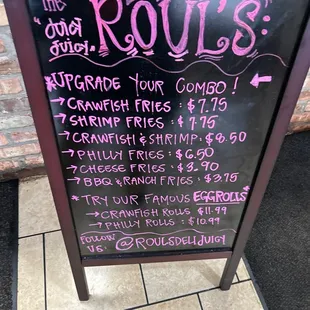 the
"Juicy
Juicy"
ROUL'S:
*UPGRADE YOUR COMBO! ←
→CRAWFISH FRIES: $7.75
→SHRIMP FRIES: $7.75
→CRAWFISH & SHRIMP: $8.50
→PHILLY FRIES: $6.50
→CHEESE FRIES: $3.90
→BBQ & RANCH FRIES: $3.75
*TRY OUR FAMOUS EGGROLLS*
→CRAWFISH ROLLS $11.99
→PHILLY ROLLS $10.99
FOLLOW US @ROULSDELIJUICY